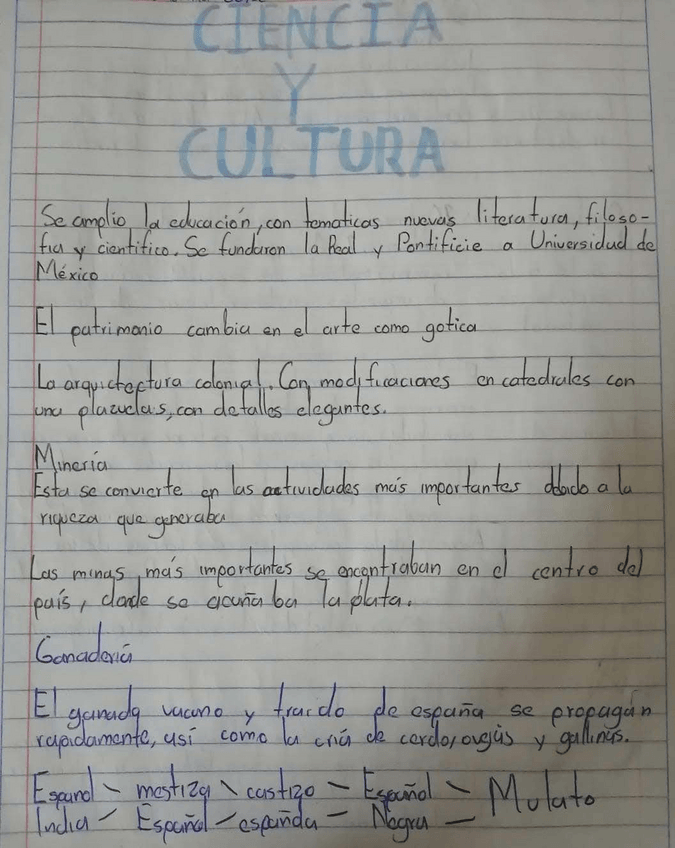 CIENCIA
Y
CULTURA
Se amplio la educación, con tematicas nuevas literatura, filoso-
fia y cientifico. Se fundaron la Real y Pontificie a Universidad de
México
El patrimonio cambia en el arte como gotica
La arquictectura colonial. Con modificaciones en catedrales con
una plazuelas, con detalles elegantes.
Minería
Esta se convierte en las actividades más importantes ddado a la
riqueza que generaba
Las minas más importantes se encontraban en el centro del
país, donde se acuña ba la plata.
Ganadería
El ganada vacuno y traido de españa se propagán
rapidamente, así como la criá de cerdo, ovejàs y gallinas.
Espanol - mestiza \ castizo - Español - Mulato
India - Español - españda - Negra -